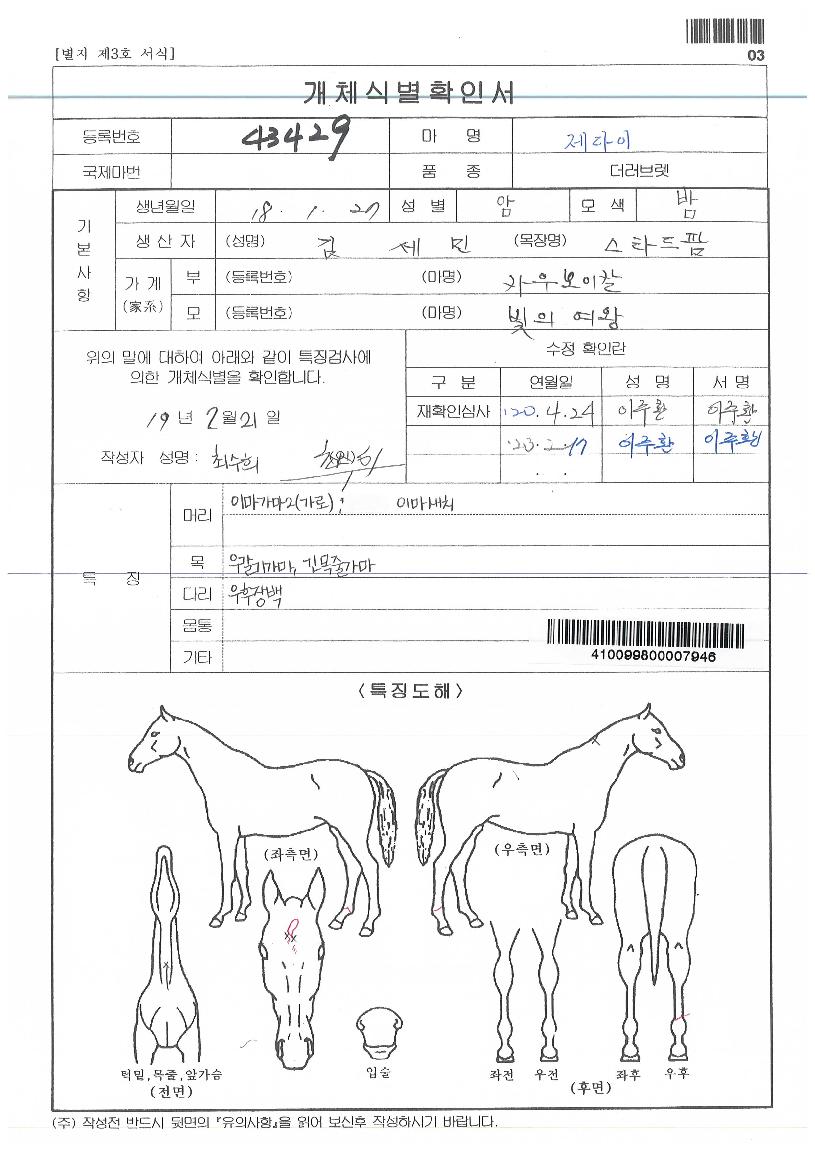 [별지 제3호 서식]
03
개체식별확인서
등록번호 43429 마 명 제다이
국제마번 품 종 더러브렛
기본사항
생년월일 18. 1. 27 성 별 암 모 색 밤
생 산 자 (성명) 김 세 민 (목장명) 스타드팜
가 계 (家系)
부 (등록번호) (마명) 카우보이찰
모 (등록번호) (마명) 빛의 여왕
위의 말에 대하여 아래와 같이 특징검사에
의한 개체식별을 확인합니다.
19 년 2 월 21 일
작성자 성명 : 최수희
수정 확인란
구 분 연월일 성 명 서 명
재확인심사 '20. 4. 24 이주환 이주환
'23. 2. 17 이주환 이주환
특 징
머리 이마가마2(가로); 이마새치
목 우갈기가마, 긴목줄가마
다리 우후장백
몸통
기타
410099800007946
<특징도해>
(좌측면) (우측면)
턱밑,목줄,앞가슴
(전면)
입술
좌전 우전 좌후 우후
(후면)
(주) 작성전 반드시 뒷면의 『유의사항』을 읽어 보신후 작성하시기 바랍니다.